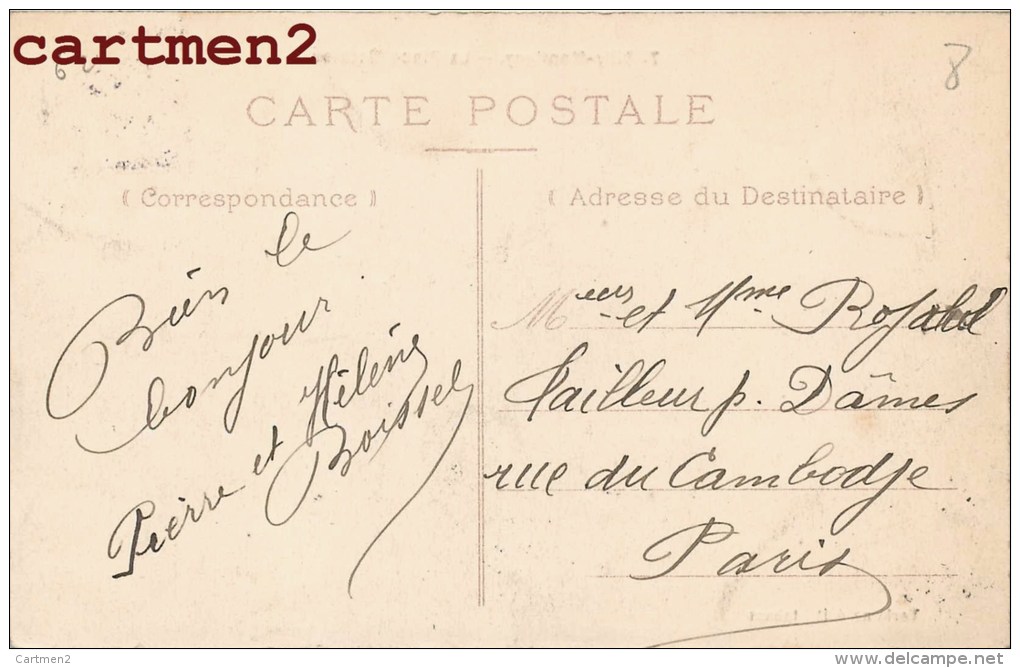 cartmen2
8
CARTE POSTALE
( Correspondance )
Bien le
bonjour
Pierre et Hélène
Boissel
( Adresse du Destinataire )
Meeurs et Mme
Tailleur p. Dâmes
rue du Cambodje
Paris
Cartmen2
www.delcampe.net